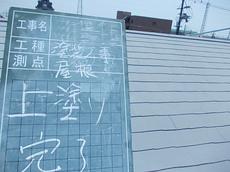 工事名
工種 塗装工事
測点 屋根
上塗り
完了